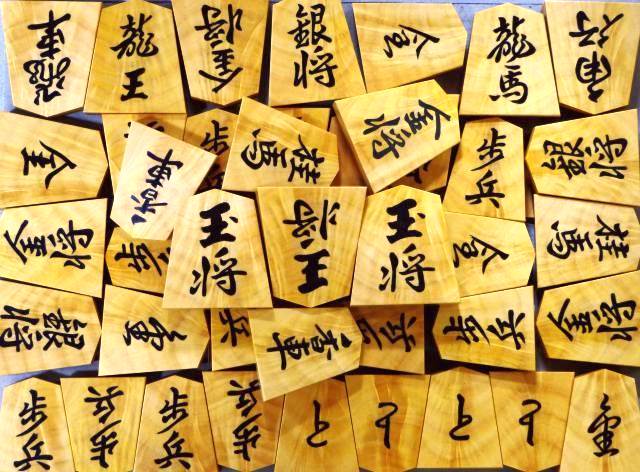 飛車
龍王
金将
銀将
全
龍馬
角行
金
香車
歩
桂馬
金将
歩兵
銀将
金将
歩兵
玉将
王将
玉将
全
桂馬
銀将
香車
兵
香車
歩兵
歩兵
金将
歩兵
歩兵
歩兵
歩兵
と
と
と
と